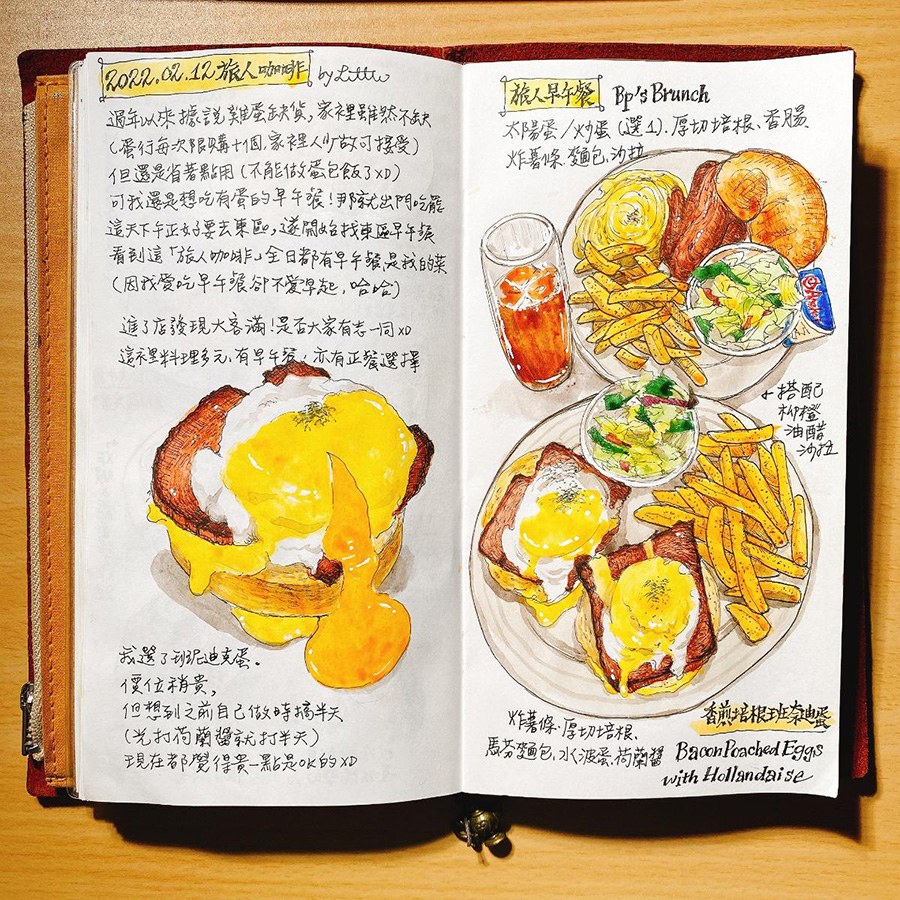 2022.02.12 旅人咖啡 by Littw
過年以來據說雞蛋缺貨,家裡雖然不缺
(蛋行每次限購十個,家裡人少故可接受)
但還是省著點用(不能做蛋包飯了XD)
可我還是想吃有蛋的早午餐!那就出門吃罷
這天下午正好要去東區,遂開始找東區早午餐
看到這「旅人咖啡」全日都有早午餐是我的菜
(因我愛吃早午餐卻不愛早起,哈哈)
進了店發現大客滿!是否大家有志一同XD
這裡料理多元,有早午餐,亦有正餐選擇
我選了班尼迪克蛋。
價位稍貴,
但想到之前自己做時搞半天
(光打荷蘭醬就打半天)
現在都覺得貴一點是OK的XD
旅人早午餐 Bp's Brunch
太陽蛋/炒蛋(選1).厚切培根、香腸、
炸薯條、麵包、沙拉
搭配
柳橙
油醋
沙拉
香煎培根班奈迪蛋
炸薯條.厚切培根、
馬芬麵包、水波蛋、荷蘭醬
Bacon Poached Eggs
with Hollandaise